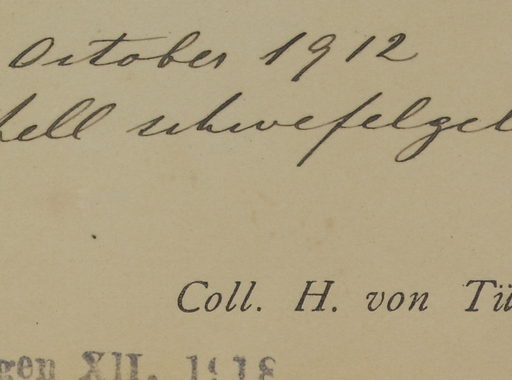 October 1912
hell schwefelgel
Coll. H. von Tü
gen XII. 1918